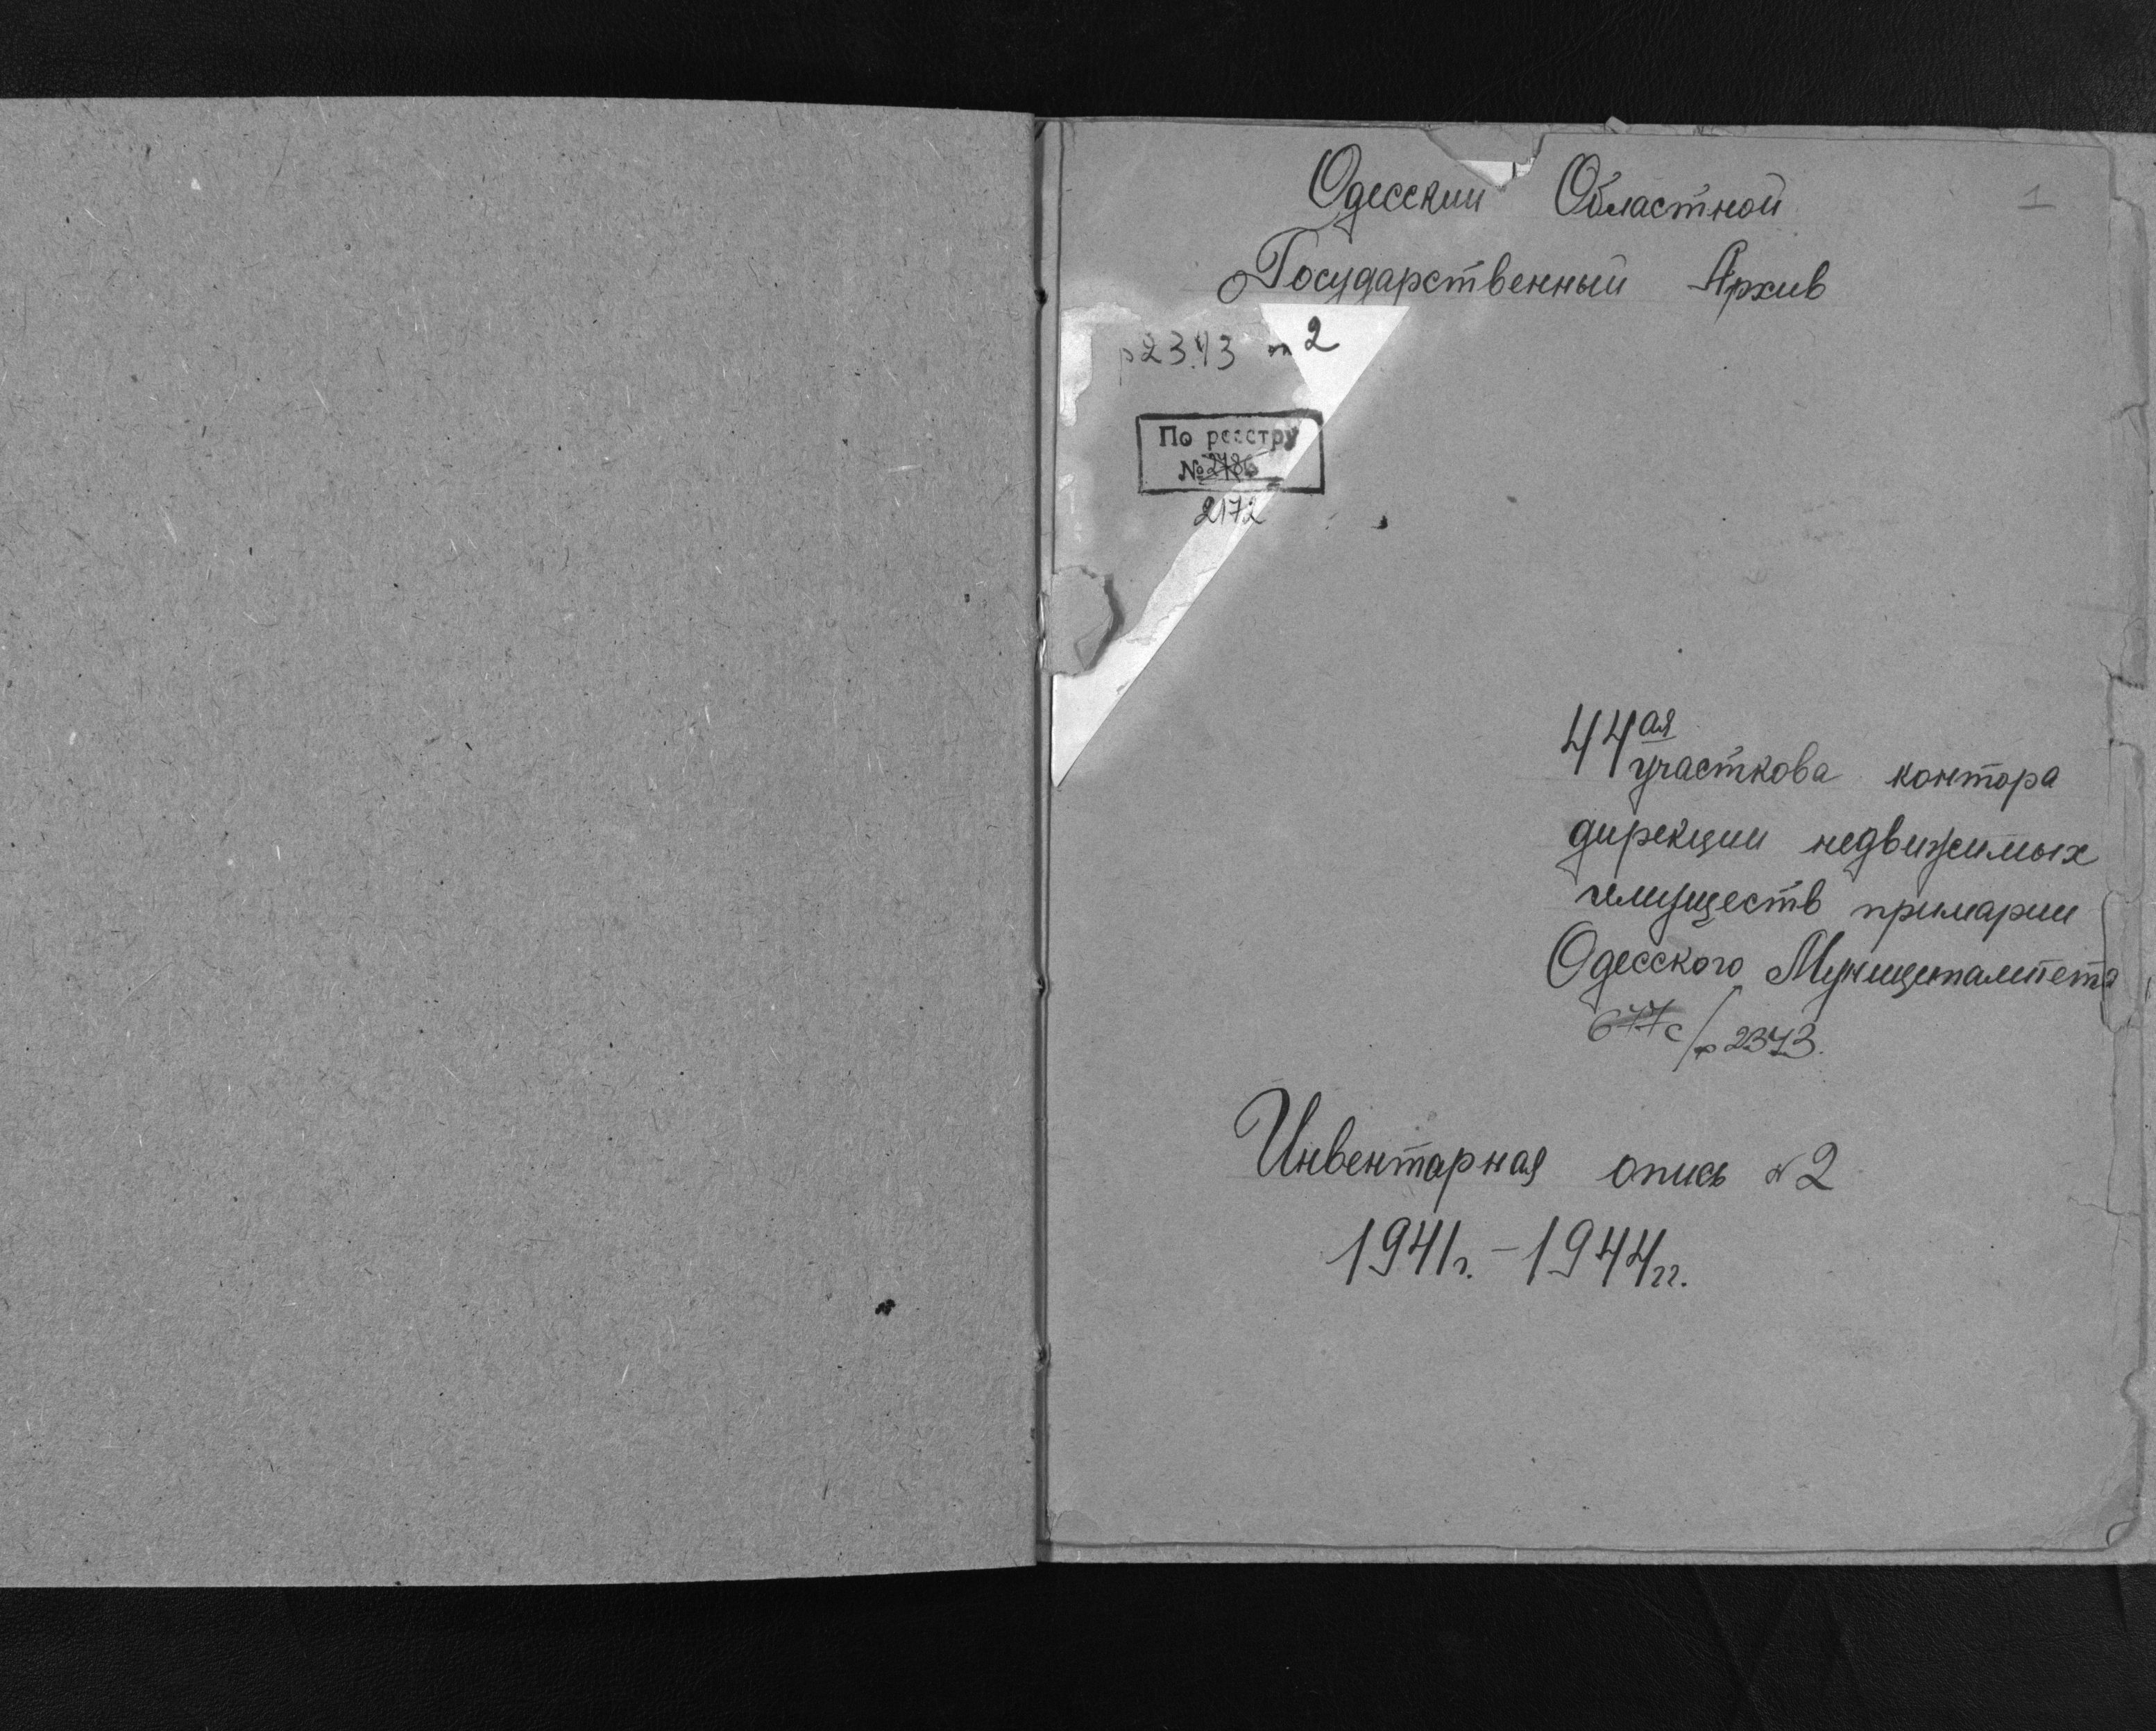 Одесский Областной
1
Государственный Архив
р2373 оп 2
По реестру
№
2172
44ая
участкова контора
дирекции недвижимых
имуществ примарии
Одесского Муниципалитета
677с/р 2373.
Инвентарная опись №2
1941г.-1944гг.